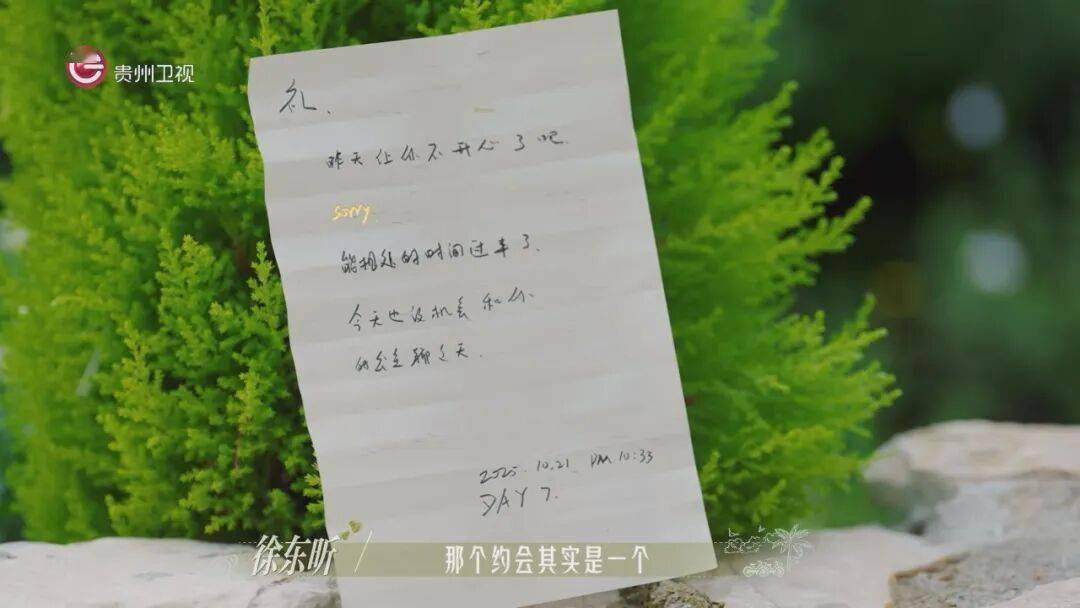 贵州卫视
礼、
昨天让你不开心了吧.
sorry.
能相处的时间过半了.
今天也没机会和你.
聊々天.
2025. 10.21 PM 10:33
DAY 7.
徐东昕
那个约会其实是一个